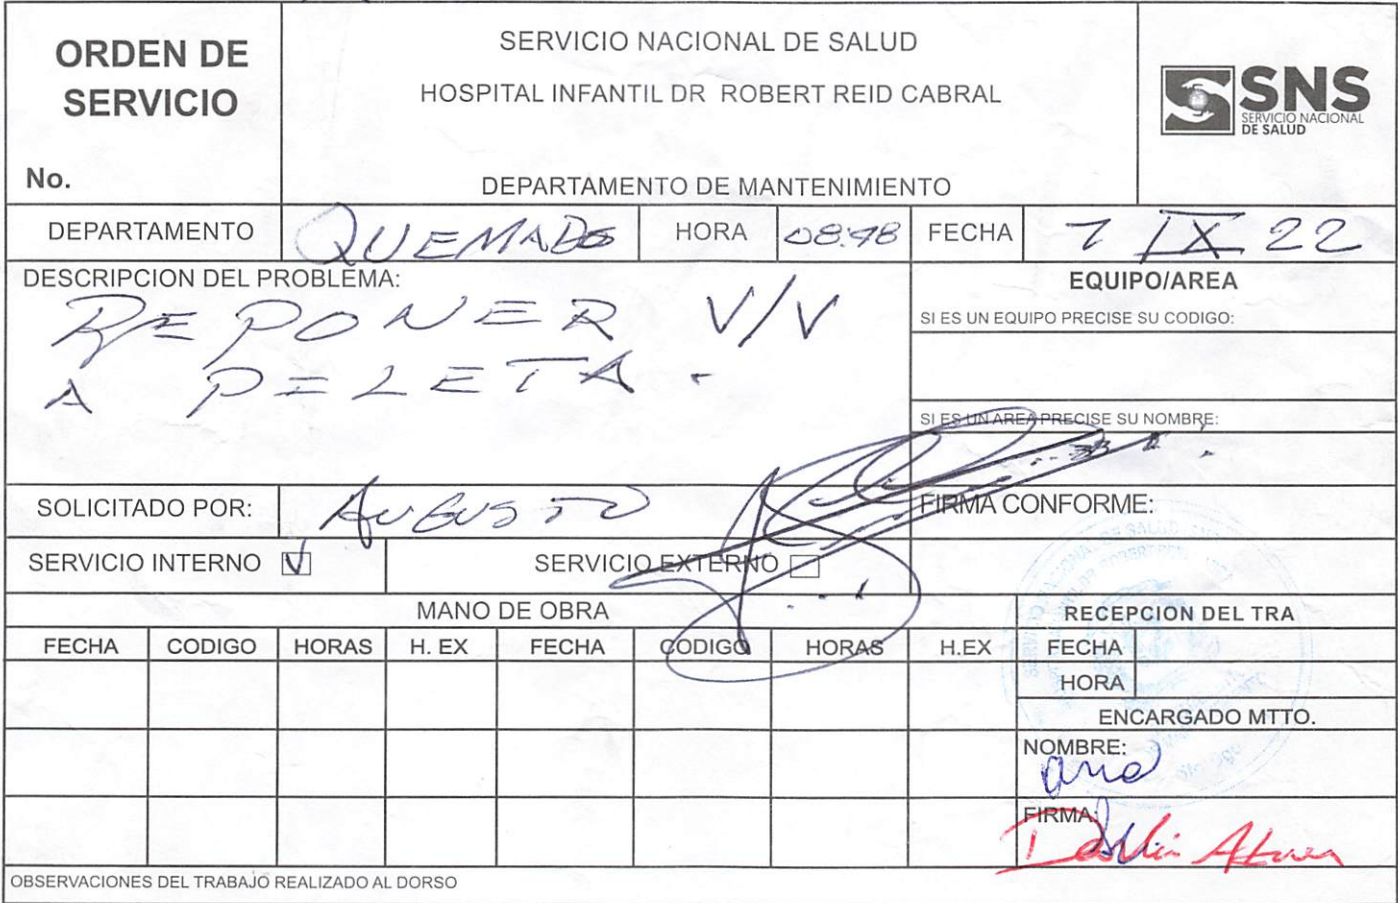 ORDEN DE
SERVICIO
No.
SERVICIO NACIONAL DE SALUD
HOSPITAL INFANTIL DR ROBERT REID CABRAL
DEPARTAMENTO DE MANTENIMIENTO
SNS
SERVICIO NACIONAL
DE SALUD
DEPARTAMENTO QUEMADO HORA 08:48 FECHA 1 IX 22
DESCRIPCION DEL PROBLEMA:
REPONER V/V
A PILETA.
EQUIPO/AREA
SI ES UN EQUIPO PRECISE SU CODIGO:
SI ES UN AREA PRECISE SU NOMBRE:
SOLICITADO POR: AUGUSTO
FIRMA CONFORME:
SERVICIO INTERNO SERVICIO EXTERNO
MANO DE OBRA
RECEPCION DEL TRA
FECHA CODIGO HORAS H. EX FECHA CODIGO HORAS H.EX FECHA
HORA
ENCARGADO MTTO.
NOMBRE:
ana
FIRMA:
OBSERVACIONES DEL TRABAJO REALIZADO AL DORSO